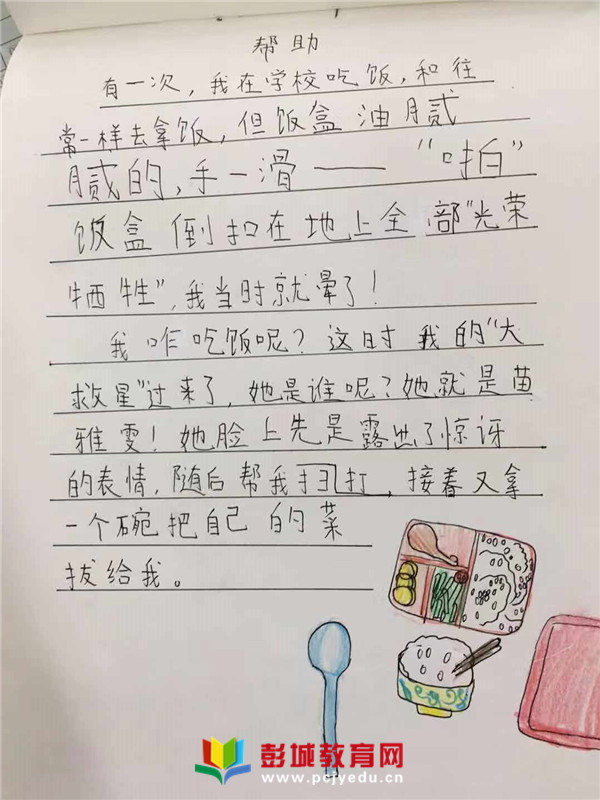 帮助
有一次，我在学校吃饭，和往
常一样去拿饭，但饭盒油腻
腻的，手一滑——“啪”
饭盒倒扣在地上全部“光荣
牺牲”，我当时就晕了！
我咋吃饭呢？这时我的“大
救星”过来了，她是谁呢？她就是苗
雅雯！她脸上先是露出了惊讶
的表情，随后帮我扫打，接着又拿
一个碗把自己的菜
拔给我。
彭城教育网
www.pcjyedu.cn